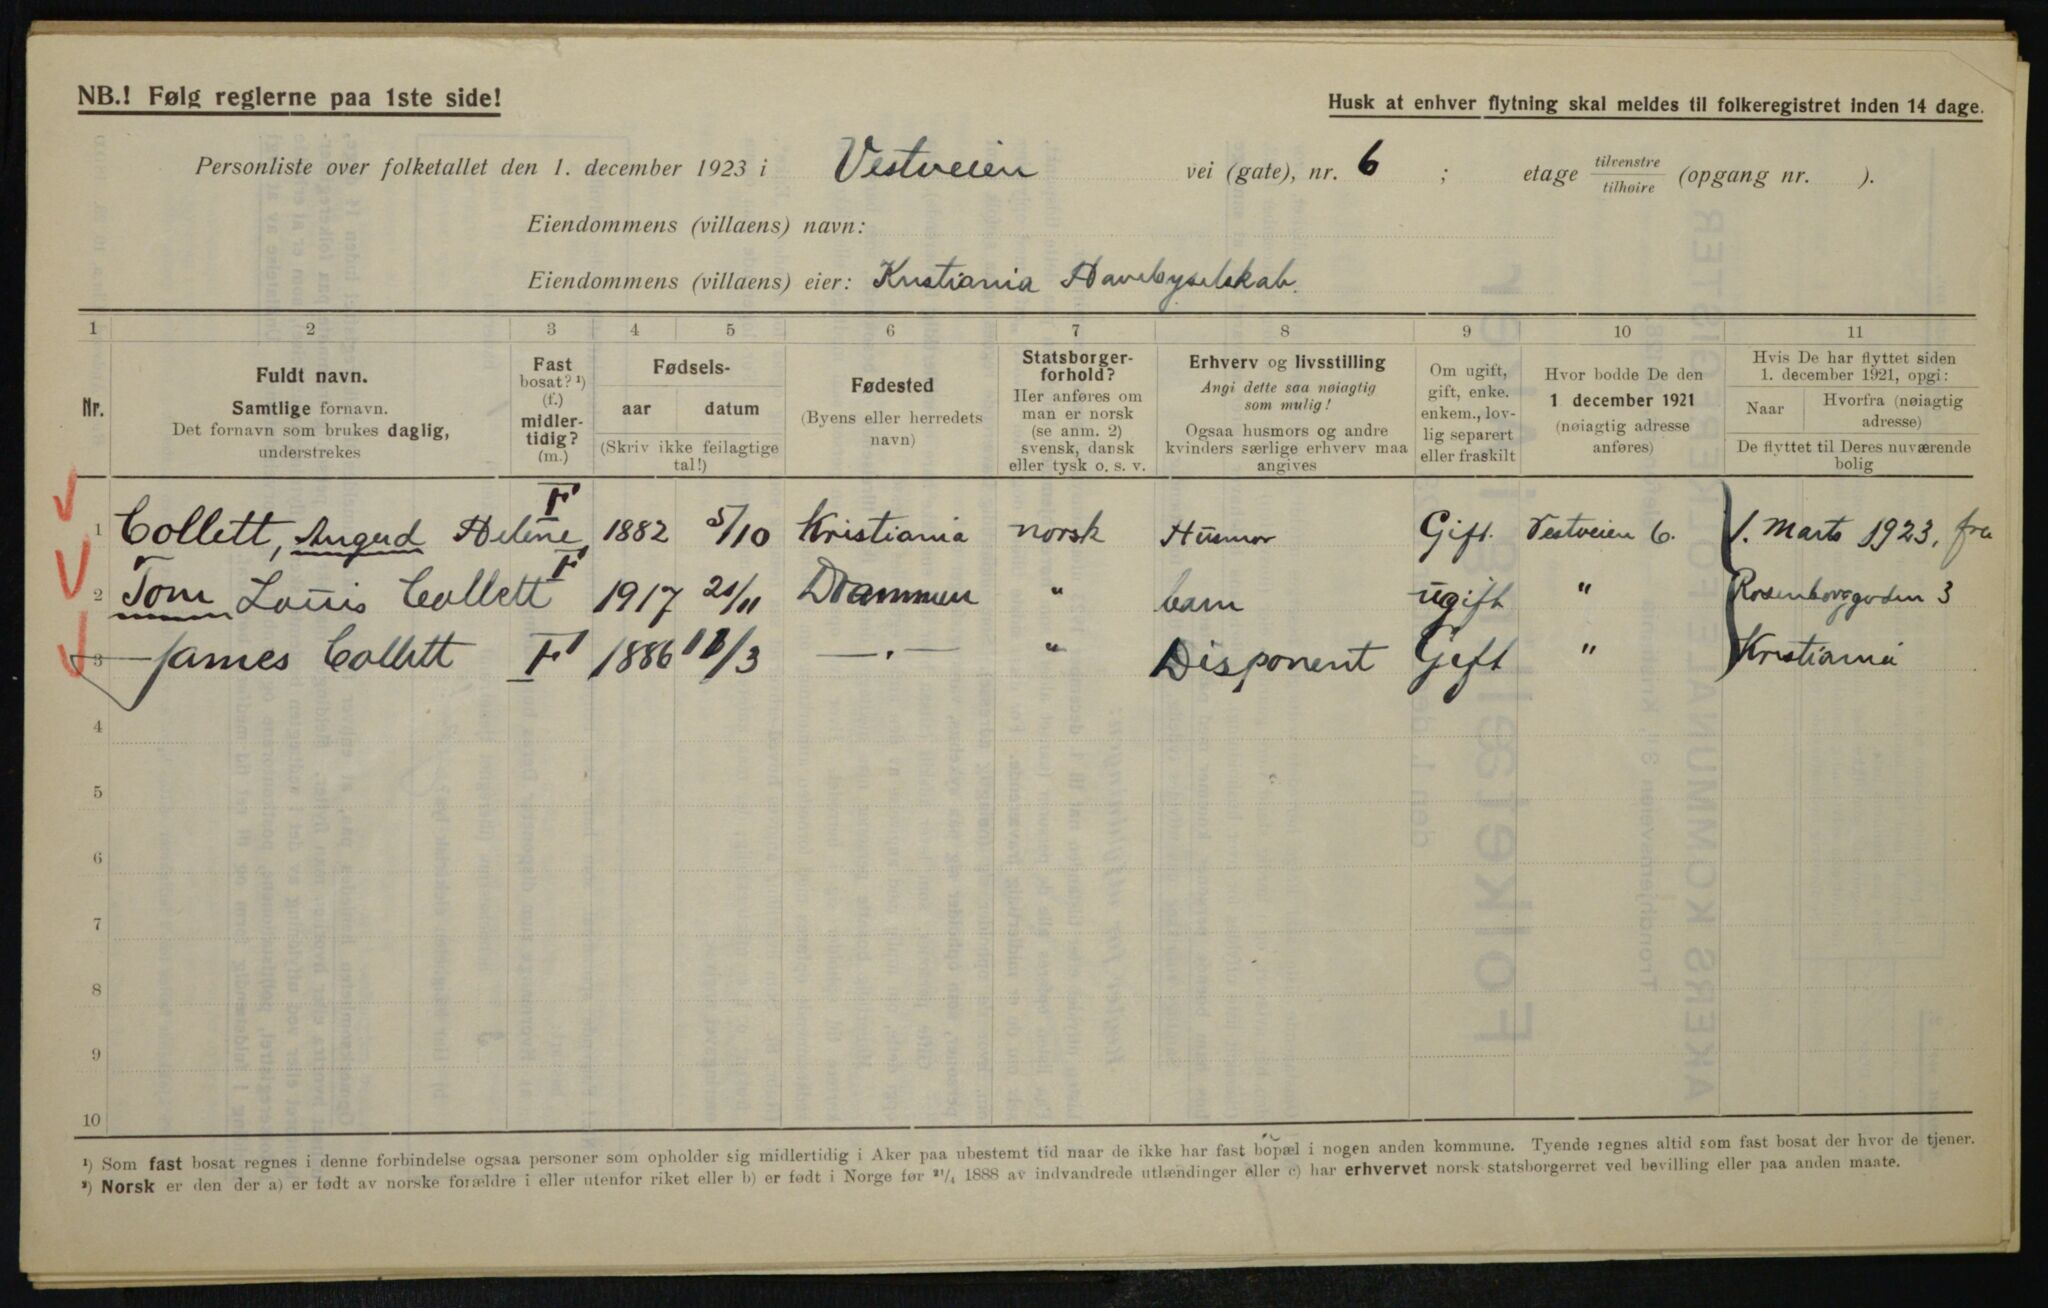 NB.! Følg reglerne paa 1ste side!
Husk at enhver flytning skal meldes til folkeregistret inden 14 dage.
Personliste over folketallet den 1. december 1923 i Vestveien vei (gate), nr. 6 ; etage tilvenstre/tilhøire (opgang nr. ).
Eiendommens (villaens) navn:
Eiendommens (villaens) eier: Kristiania Havebyselskab.
1 2 3 4 5 6 7 8 9 10 11
Nr.
Fuldt navn.
Samtlige fornavn.
Det fornavn som brukes daglig,
understrekes
Fast
bosat? ¹)
(f.)
midler-
tidig?
(m.)
Fødsels-
aar datum
(Skriv ikke feilagtige
tal!)
Fødested
(Byens eller herredets
navn)
Statsborger-
forhold?
Her anføres om
man er norsk
(se anm. 2)
svensk, dansk
eller tysk o. s. v.
Erhverv og livsstilling
Angi dette saa nøiagtig
som mulig!
Ogsaa husmors og andre
kvinders særlige erhverv maa
angives
Om ugift,
gift, enke.
enkem., lov-
lig separert
eller fraskilt
Hvor bodde De den
1 december 1921
(nøiagtig adresse
anføres)
Hvis De har flyttet siden
1. december 1921, opgi:
Naar Hvorfra (nøiagtig
adresse)
De flyttet til Deres nuværende
bolig
1 Collett, Helene F 1882 5/10 Kristiania norsk Husmor Gift. Vestveien 6. 1. Marts 1923, fra
2 Tom Louis Collett F 1917 21/11 Drammen " barn ugift " 3
3 James Collett F 1886 /3 —.— " Disponent Gift " Kristiania
4
5
6
7
8
9
10
¹) Som fast bosat regnes i denne forbindelse ogsaa personer som opholder sig midlertidig i Aker paa ubestemt tid naar de ikke har fast bopæl i nogen anden kommune. Tyende regnes altid som fast bosat der hvor de tjener.
²) Norsk er den der a) er født av norske forældre i eller utenfor riket eller b) er født i Norge før ²¹/₄ 1888 av indvandrede utlændinger eller c) har erhvervet norsk statsborgerret ved bevilling eller paa anden maate.